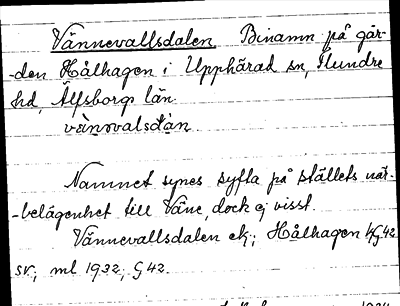 Vännevallsdalen Binamn på går-
-den Hålhagen i Upphärad sn, Flundre
hd, Älfsborgs län.
vänvalsdan
Namnet synes syfta på ställets när-
-belägenhet till Väne, dock ej visst.
Vännevallsdalen ek; Hålhagen 42
sv; ml 1932; G 42.